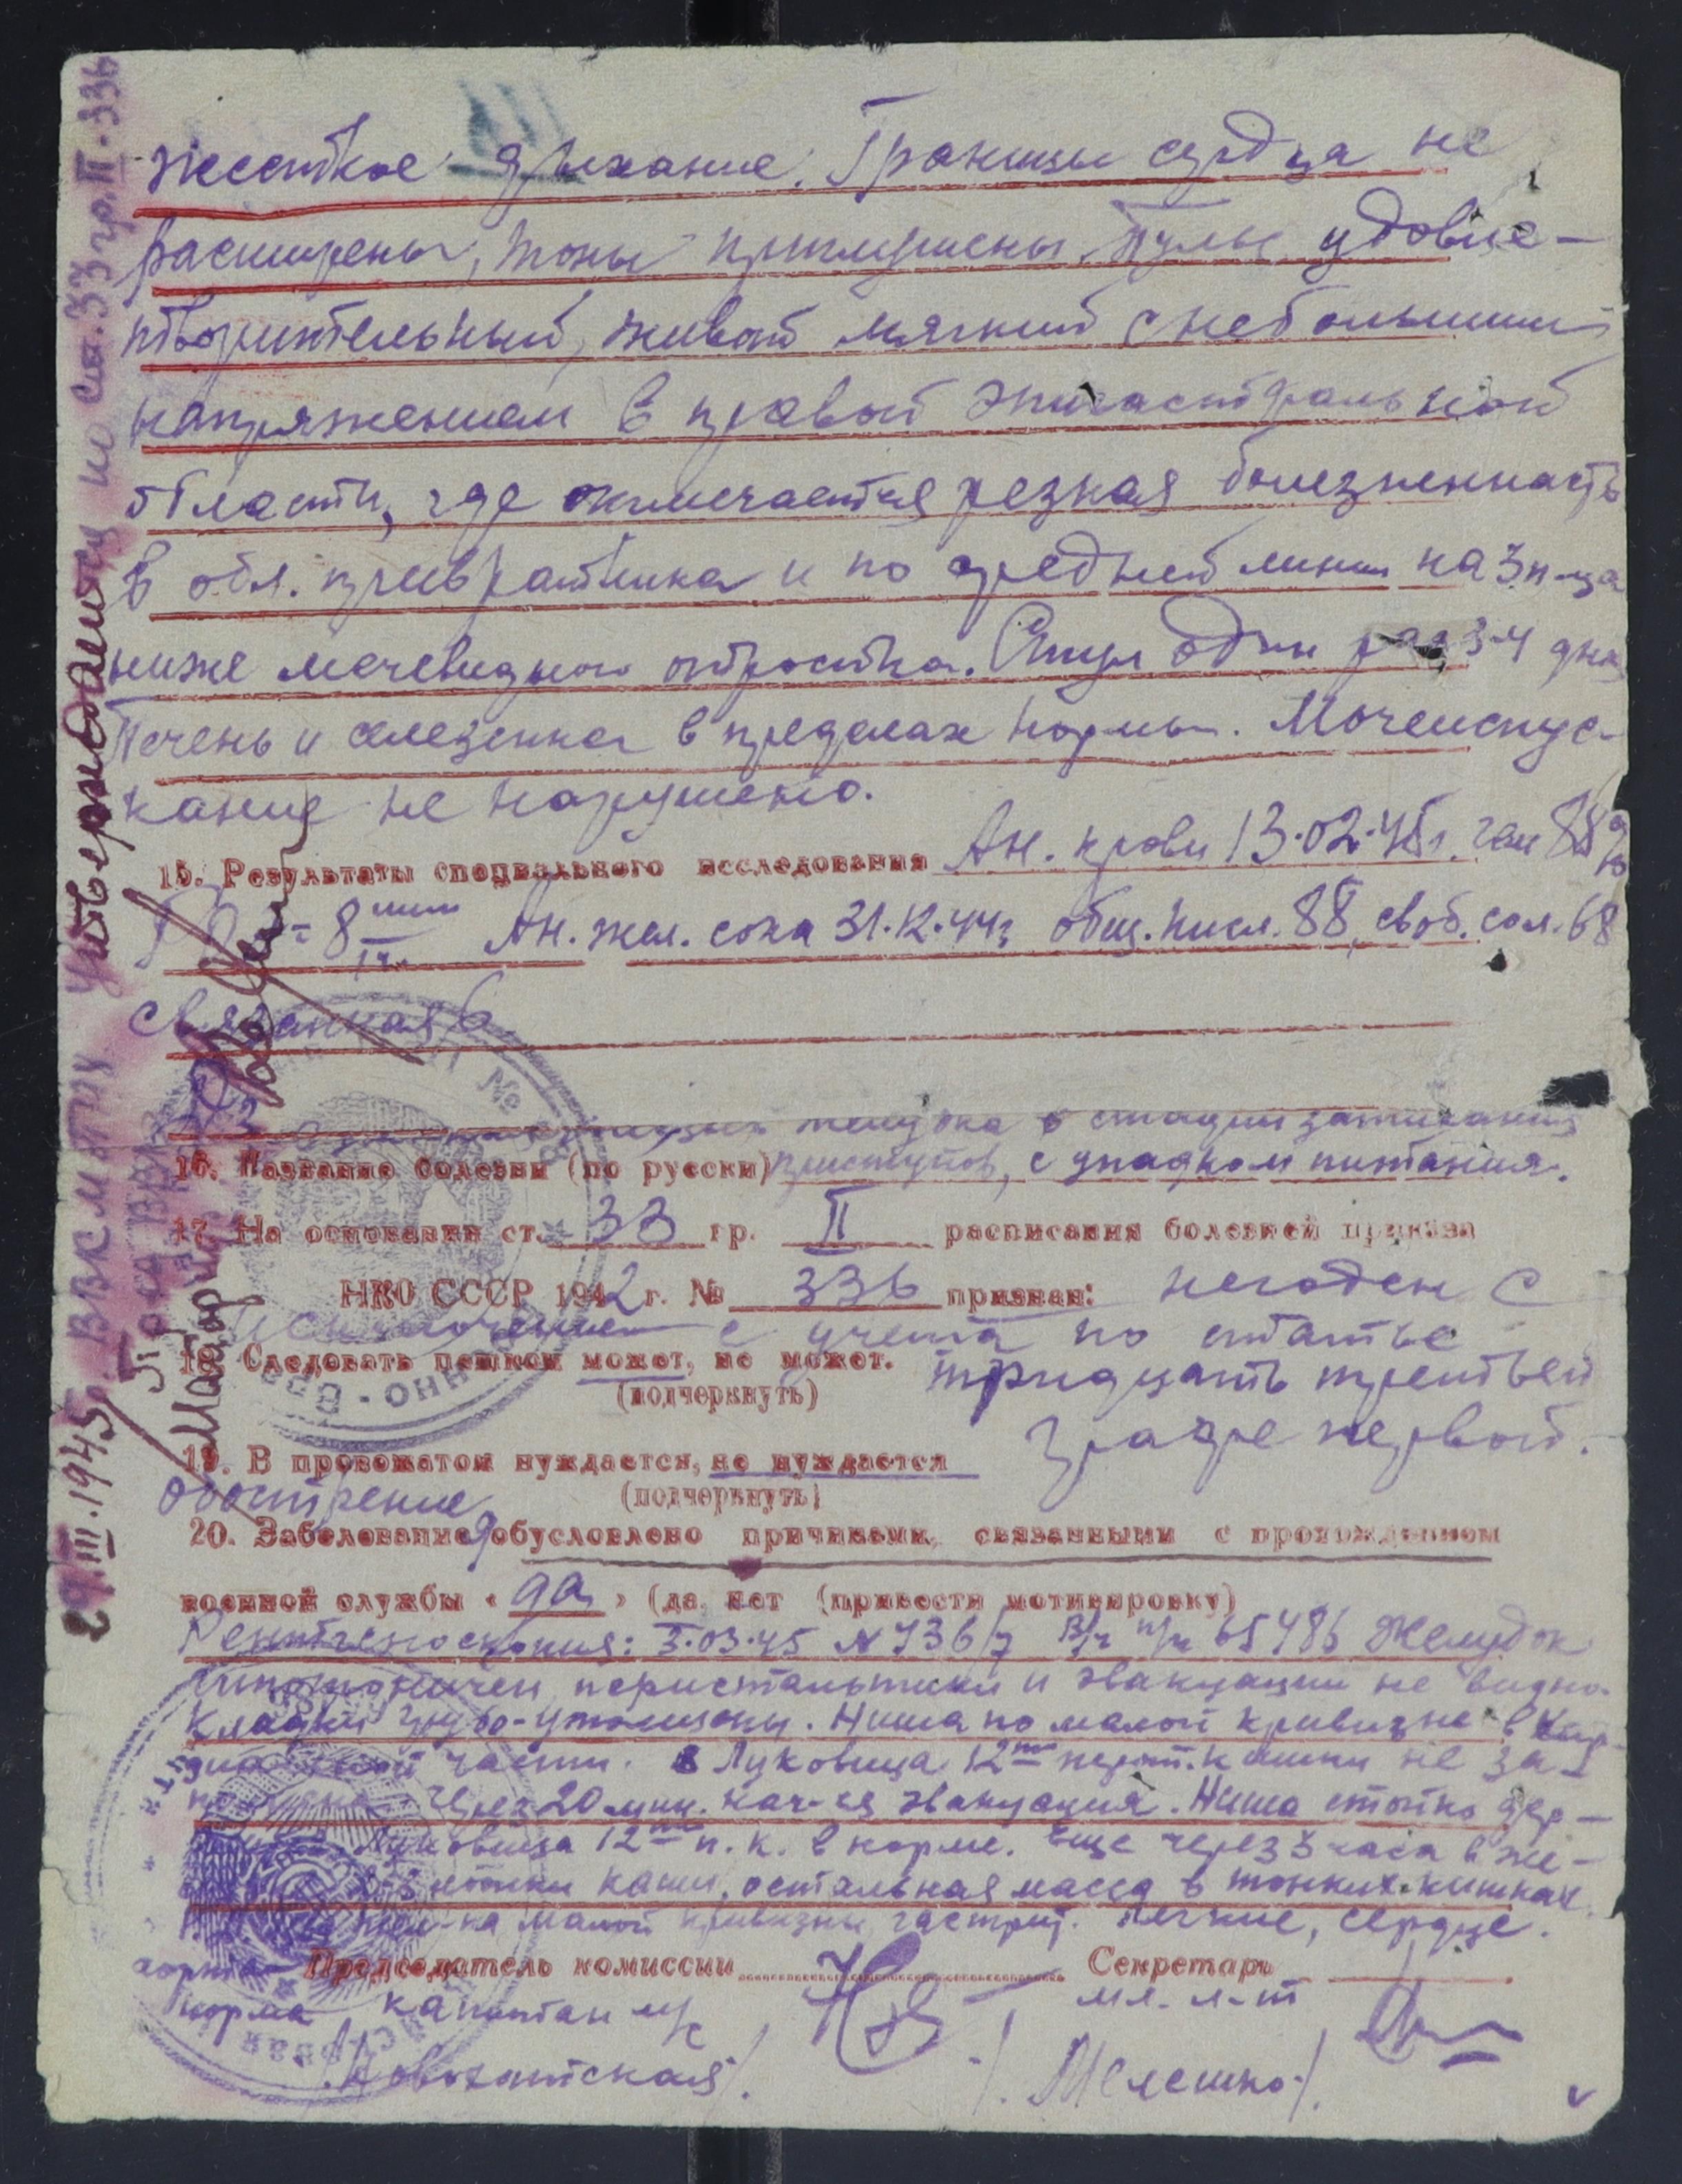 жесткое дыхание. Границы сердца не
расширены, тоны приглушены. Пульс удовле-
творительный, живот мягкий с небольшим
напряжением в правой эпигастральной
области, где отмечается резкая болезненность
в обл. привратника и по средней линии на 3 п-ца
ниже мечевидного отростка. Стул один раз 3-4 дня
Печень и селезенка в пределах нормы. Мочеиспус-
кание не нарушено.
15. Результаты специального исследования Ан. крови 13.02.45г.
= 8 Ан. жел. сока 31.12.44г общ. кисл. 88, своб. сол. 68
связанная 6
желудка в стадии затихания
16. Название болезни (по русски) приступов, с упадком питания.
17. На основании ст. 33 гр. II расписания болезней приказа
НКО СССР 1942 г. № 336 признан: негоден с
исключением с учета по статье
18. Следовать пешком может, не может. тридцать третьей
(подчеркнуть)
графе первой.
19. В провожатом нуждается, не нуждается
(подчеркнуть)
Обострение
20. Заболевание обусловлено причинами, связанными с прохождением
военной службы « да » (да, нет (привести мотивировку)
Рентгеноскопия: 3.03.45 № 736/7 В/ч п/ч 65486 Желудок
гипотоничен, перистальтики и эвакуации не видно.
Складки грубо-утолщены. Ниша по малой кривизне в кар-
диальной части. Луковица 12ти перст. кишки не за-
полнена. Через 20 мин. нач-ся эвакуация. Ниша стойко дер-
Луковица 12ти п. к. в норме. Еще через 3 часа в же-
каши, остальная масса в тонких кишках.
малой кривизны, гастрит. Легкие, сердце.
аорта Председатель комиссии Секретарь
норма капитан м/с мл. л-т
/Новогатская/. /Мелешко/.
29.III.1945г. ВВК МВО Утверждается по ст. 33 гр. II. 336
Майор